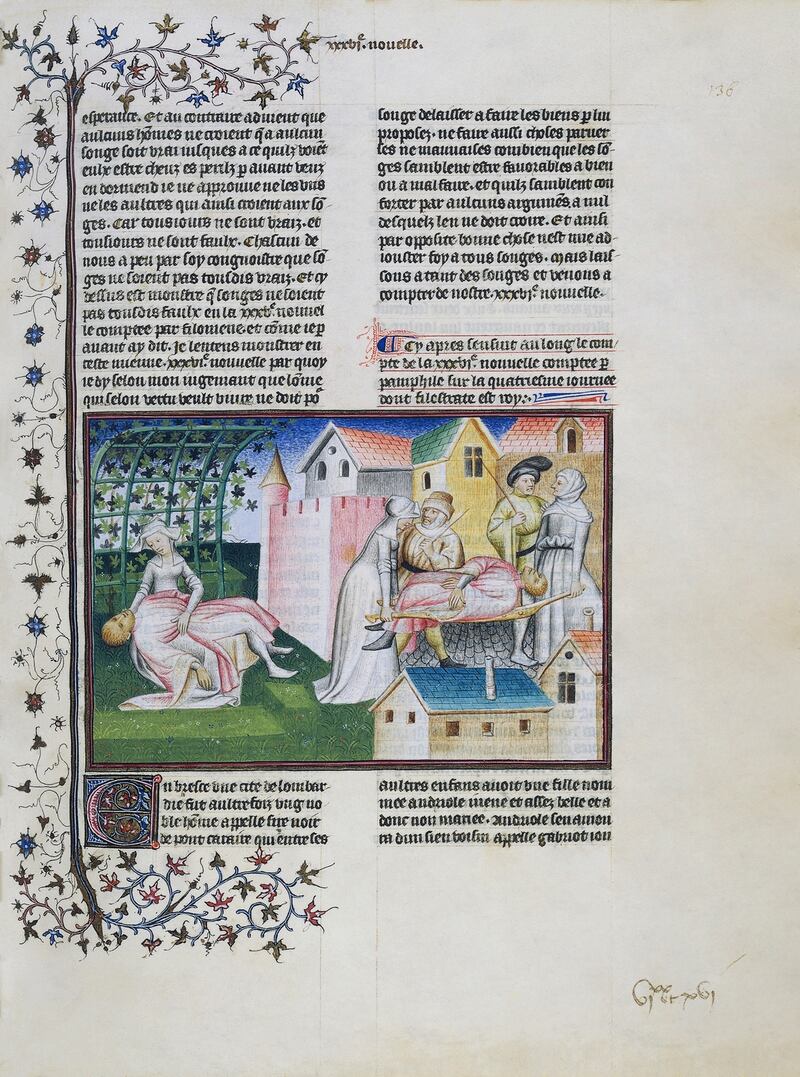 xxxvi.e nouelle.
136
esperance. Et au contraire aduient que
aulcuns hõmes ne croient q̃ a aulcun
songe soit vrai iusques a ce quilz voiẽt
eulx estre cheuz es perilz p auant veuz
en dormend ie ne approuue ne les vns
ne les aultres qui ainsi croient aux sõ
ges. Car tousiours ne sont vraiz. et
tousiours ne sont faulx. Chascun de
nous a peu par soy congnoistre que sõ
ges ne soient pas tousdis vraiz. Et cy
dessus est monstre q̃ songes ne soient
pas tousdis faulx en la xxxv.e nouuel
le comptee par filomene. et cõme ie p
auant ay dit. Je lentens monstrer en
ceste mienne. xxxvi.e nouuelle par quoy
ie dy selon mon iugemant que lõme
qui selon vertu veult viure ne doit põ
songe delaisser a faire les biens p lui
proposez. ne faire aussi choses peruer
ses ne mauuaises combien que les sõ
ges samblent estre fauorables a bien
ou a mal faire. et quilz samblent con
forter par aulcuns argumẽs, a nul
desquelz len ne doit croire. Et ainsi
par opposite bonne chose nest mie ad
iouster foy a tous songes. Mais lais
sons a tant des songes et venons a
compter de nostre. xxxvi.e nouuelle.
Cy apres sensuit au long le com
pte de la xxxvi.e nouuelle comptee p
pamphile sur la quatriesme iournee
dont filostrate est roy.
En bresce vne cite de lombar
die fut aultrefois vng no
ble hõme appelle sire noir
de pont carraire qui entre ses
aultres enfans auoit vne fille nom
mee andriole iuene et assez belle et a
donc non mariee. Andriole senamou
ra dun sien voisin appelle gabriot iou
vi xx et xvi